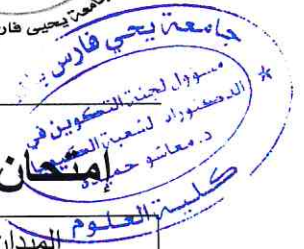 جامعة يحيى فارس
جامعة يحيى فارس
مسؤول لجنة التكوين في
الدكتوراه لشعبة
د. معاشو حميدة
إمتحان
كلية العلوم
الميدان